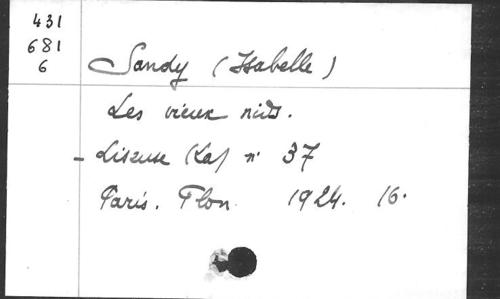 431
681
6
Sandy (Isabelle)
Les vieux nids.
- Liseuse (La) n° 37
Paris. Plon. 1924. 16.